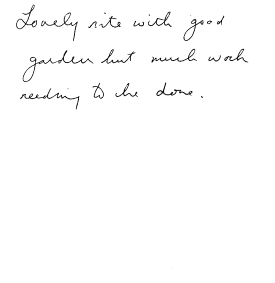 Lovely site with good
garden but much work
needing to be done.